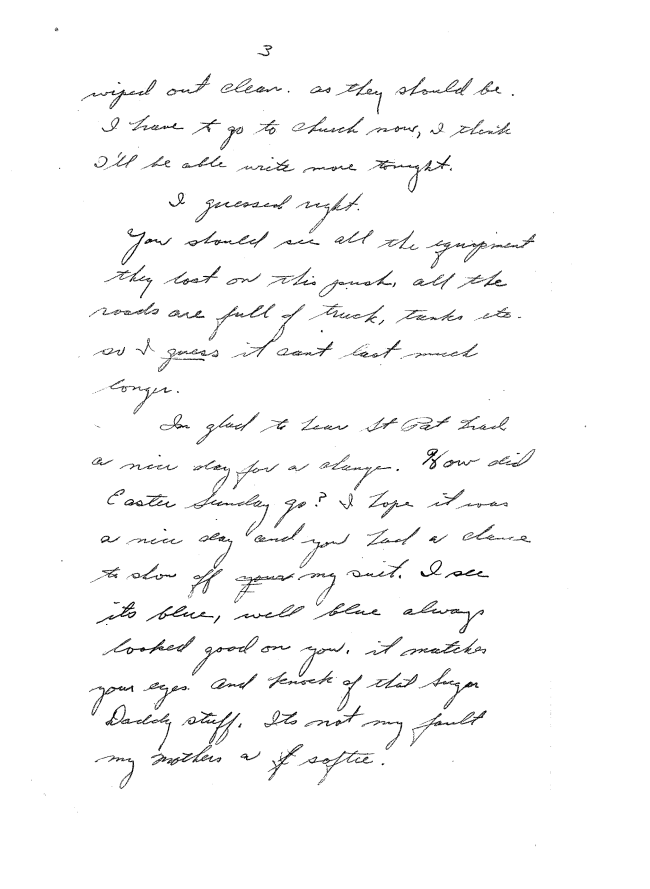 3
wiped out clean. as they should be.
I have to go to church now, I think
I'll be able write more tonight.
I guessed right.
You should see all the equipment
they lost on this push, all the
roads are full of truck, tanks etc.
so I guess it cant last much
longer.
Im glad to hear St Pat had
a nice day for a change. How did
Easter Sunday go? I hope it was
a nice day and you had a chance
to show off my suit. I see
its blue, well blue always
looked good on you. it matches
your eyes. and knock of that Sugar
Daddy stuff. Its not my fault
my mothers a softie.